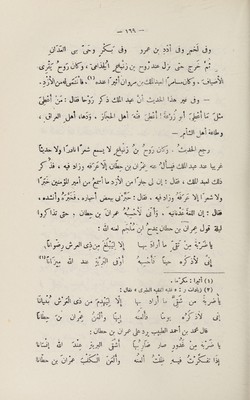 — ١٦٦ —
وفى لخم وفى أدد بن عمرو وفى يشكر وحىّ بنى الغدان
ثم خرج حتى نزل عند روح بن زنباع الجذامى، وكان روح يقرى
الأضياف، وكان مسامرا لعبد الملك بن مروان أثيرا عنده(١)، فانتمى له من الأزد.
— وفى غير هذا الحديث أنّ عبد الملك ذكر روحا فقال: من أعطى
مثل ما أعطى أبو زرعة! أعطى فقه أهل الحجاز، ودهاء أهل العراق،
وطاعة أهل الشأم —
رجع الحديث. وكان روح بن زنباع لا يسمع شعرا نادرا ولا حديثا
غريبا عند عبد الملك فيسأل عنه عمران بن حطان إلا عرفه وزاد فيه، فذكر
ذلك لعبد الملك، فقال: إن لى جارا من الأزد ما أسمع من أمير المؤمنين خبرا
ولا شعرا إلا عرفه وزاد فيه، فقال: خبّرنى ببعض أخباره، فخبّره وأنشده،
فقال: إن اللغة عدنانية، وإنى لأحسبه عمران بن حطان، حتى تذاكروا
ليلة قول عمران بن حطان يمدح ابن ملجم لعنه الله:
يا ضربة من تقىّ ما أراد بها إلا ليبلغ من ذى العرش رضوانا
إنى لأذكره حينا فأحسبه أوفى البرية عند الله ميزانا(٢)
(١) أثيرا: مكرما.
(٢) زيادات ر: « قال الفقيه الطبرى، فقال:
يا ضربة من شقىّ ما أراد بها إلا ليهدم من ذى العرش بنيانا
إنى لأذكره يوما فألعنه وألعن عمران بن حطانا
قال محمد بن أحمد الطبيب يرد على عمران بن حطان:
يا ضربة من غدور صار ضاربها أشقى البرية عند الله إنسانا
إذا تفكرت فيه ظلت ألعنه وألعن الكلب عمران بن حطانا